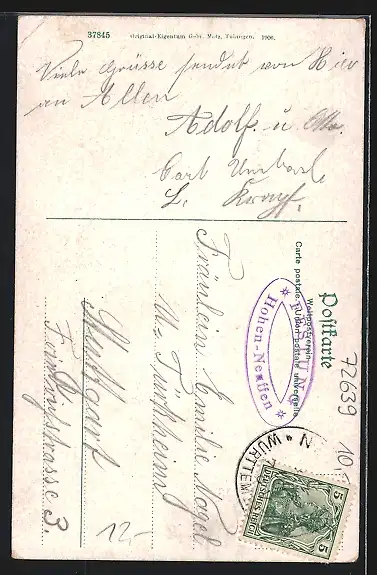 37845 Original-Eigentum Gebr. Metz, Tübingen. 1906.
Viele Grüsse sendet von Hier
an Allen
Adolf. u. Otto.
Carl
L.
Postkarte
Weltpostverein
Carte postale. Union postale universelle
FESTUNG
Hohen-Neuffen
Fräulein Emilie Nagel
Stuttgart
strasse 3.
WÜRTTEM
DEUTSCHES REICH
5 5
72639
10
12,-